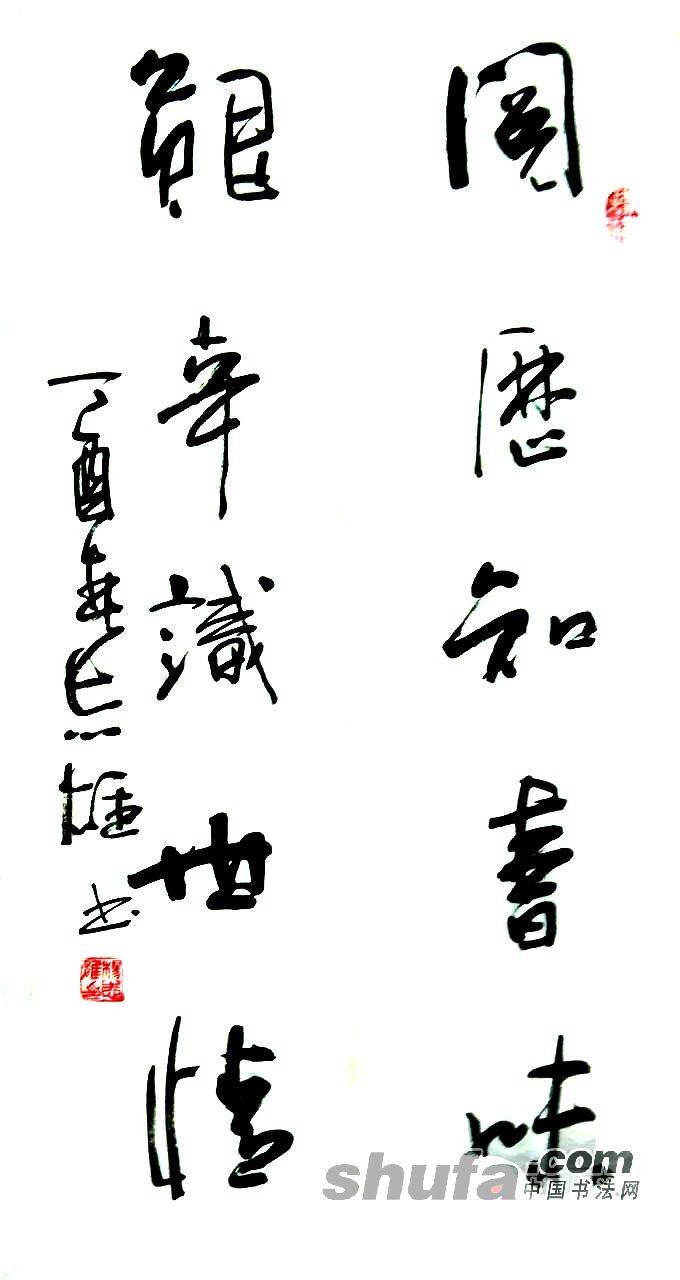 閱歷知書味
艱辛識世情
丁酉春雄书
shufa.com
中国书法网